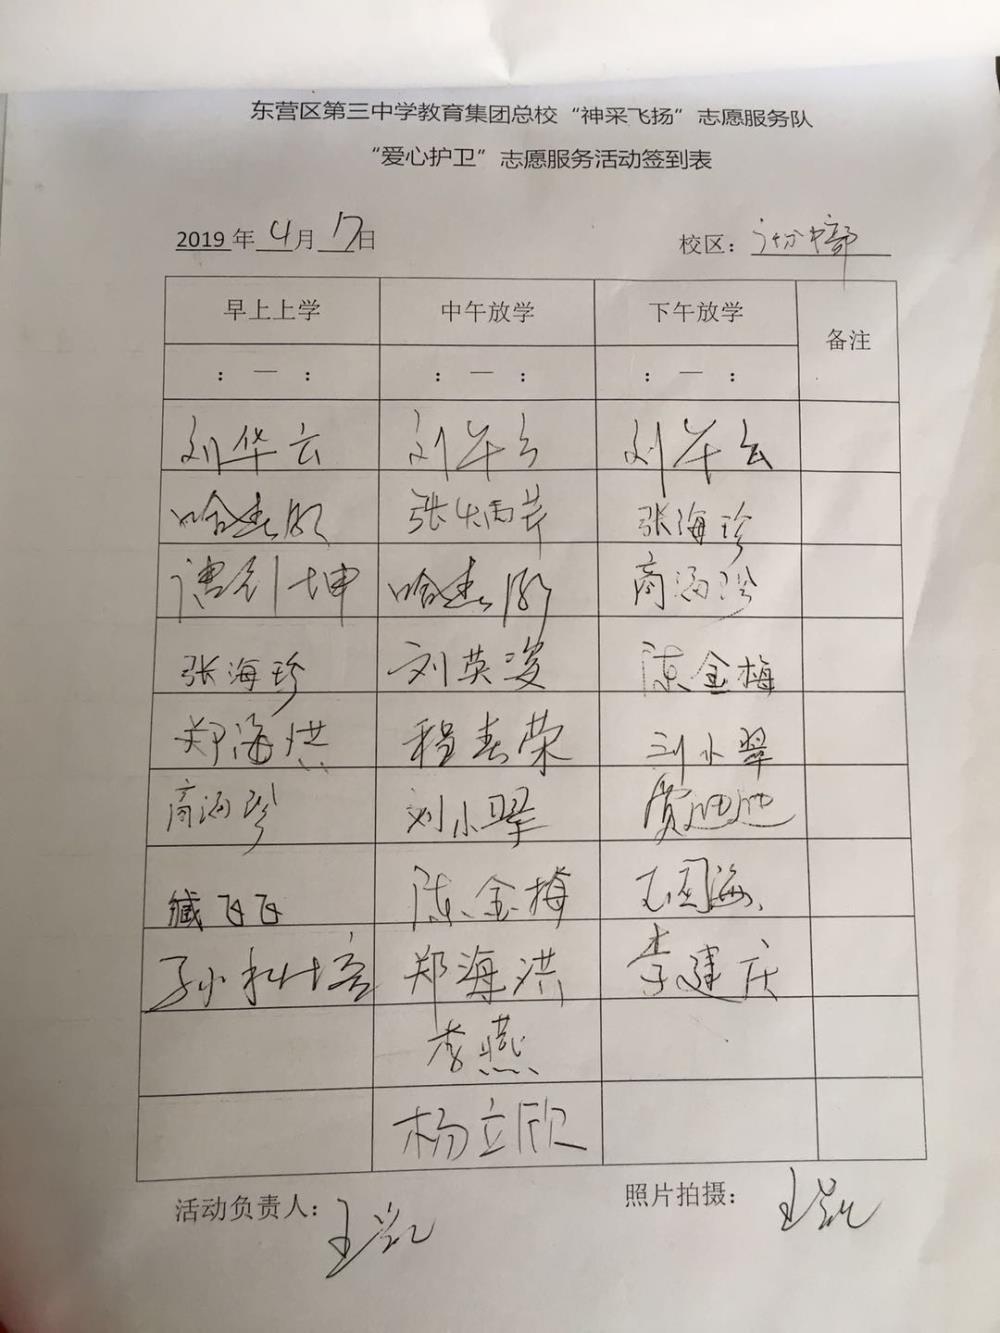 东营区第三中学教育集团总校“神采飞扬”志愿服务队
“爱心护卫”志愿服务活动签到表
2019 年 4 月 17 日 校区：
早上上学 中午放学 下午放学 备注
： — ： ： — ： ： — ：
刘华云 刘华云 刘华云
张海珍
商海珍
张海珍 刘英俊 陈金梅
郑海洪 程春荣 刘小翠
商海珍 刘小翠
臧飞飞 陈金梅 王国海
孙科培 郑海洪 李建庆
李燕
杨立欣
活动负责人： 王凯 照片拍摄： 王凯